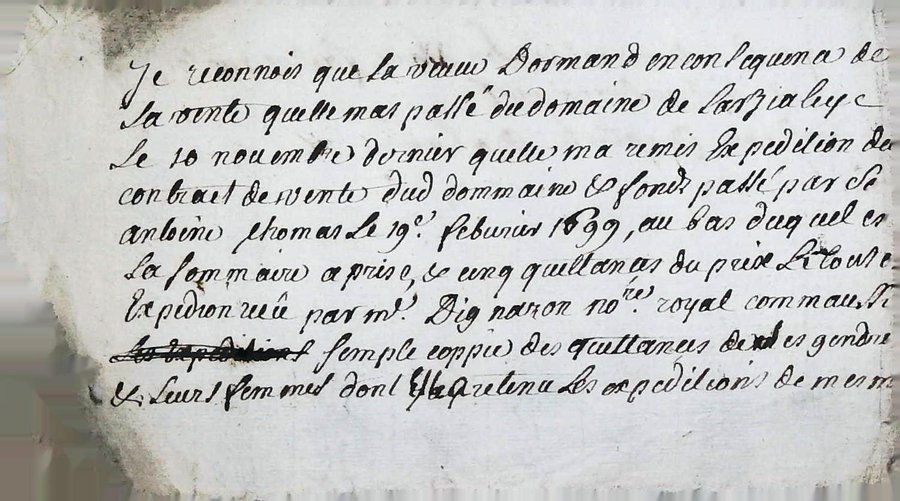 Je reconnois que la veuve Dormand en consequence de
la vente quelle mas passé du domaine de
Le 10 novembre dernier quelle ma remis Expedition de
contract de vente dud dommaine & fonds passé par Sr
antoine thomas Le 19e. febvrier 1699, au bas duquel es
La sommaire aprise, & cinq quittances du prix Le tout e
Expedion receû par me. nore. royal comm aussi
semple coppie des quittances de gendre
& leurs femmes dont Elle a retenu Les expeditions de mesm